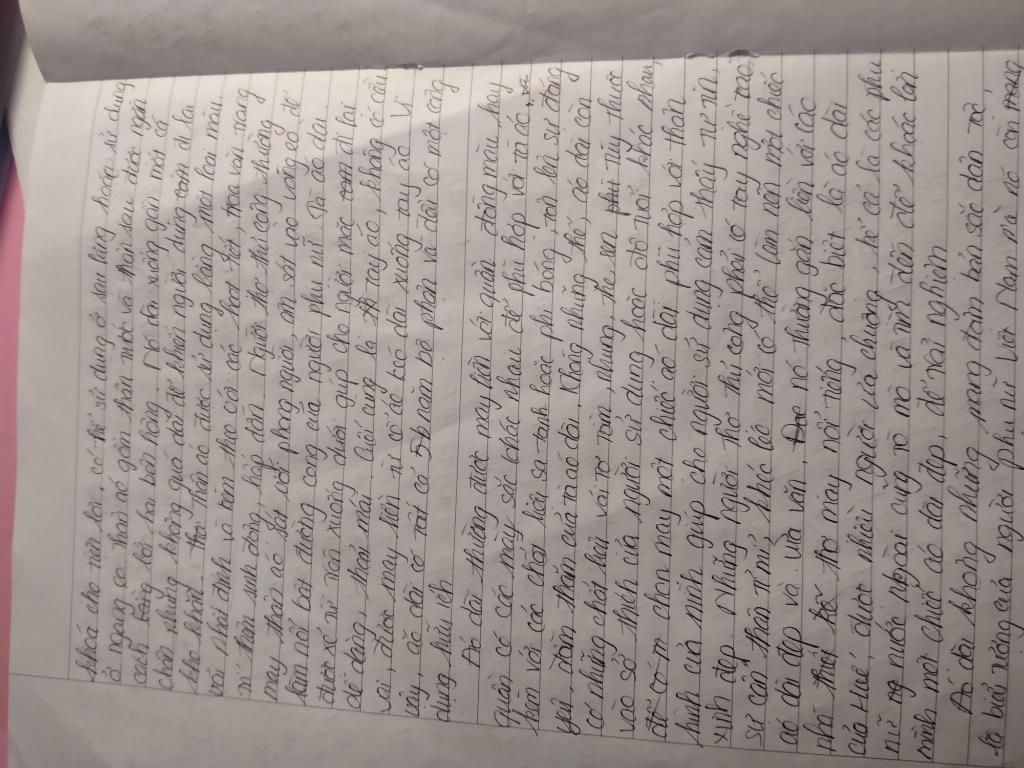 khoá cho tiện lợi, có thể sử dụng ở sau lưng hoặc sử dụng
ở ngang eo. Thân áo gồm thân trước và thân sau được ngăn
cách bởi hai bên hông, nó từ eo xuống gần mắt cá
chân nhưng không quá dài để khiến người dùng đi lại
khó khăn, thợ thân áo được sử dụng bằng một loại màu
vải nhất định và làm theo với các hoạt tiết, hoa văn trang
trí thêm sinh động, hấp dẫn. Người thợ thủ công thường
may thân áo sát phong người, ôm sát vào vòng eo để
làm nổi bật đường cong của người phụ nữ. Tà áo dài
được xẻ từ trên xuống dưới giúp cho người mặc đi lại
dễ dàng, thoải mái. Cuối cùng là tay áo, không có cầu
vai, được may liền từ cổ áo kéo dài xuống tay áo. Vì
vậy, áo dài có tất cả 5 bộ phận và đều có một công
dụng hữu ích.
Áo dài thường được may liền với quần đồng màu, hay
quần có các màu sắc khác nhau để phù hợp với tà áo,
liền với các chất liệu sa tanh hoặc phi bóng tạo lên sự đáng
yêu, đằm thắm của tà áo dài. Không những thế, áo dài còn
có những chất liệu vải tơ tằm, nhung the tùy thuộc
vào sở thích của người sử dụng hoặc do nơi khác nhau,
để có chọn may một chiếc áo dài phù hợp với thân
hình của mình giúp cho người sử dụng cảm thấy tự tin,
xinh đẹp. Những người thợ thủ công phải có tay nghề cao,
sự cẩn thận tỉ mỉ, khéo léo mới có thể làm nên một chiếc
áo dài đẹp và vừa vặn. Nó thường gắn liền với các
nhà thợ may nổi tiếng, đặc biệt là áo dài
của Huế được nhiều người ưa chuộng, kể cả là các phụ
nữ ng nước ngoài cũng tò mò và tìm đến để khoác lên
mình một chiếc áo dài đẹp, để trải nghiệm
Áo dài không những mang đậm bản sắc dân tộc,
là biểu tượng của người phụ nữ Việt Nam mà nó còn mang